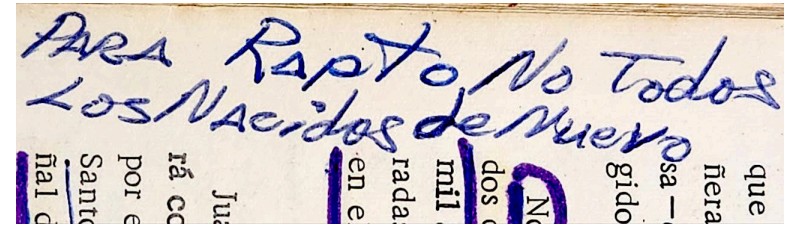 PARA Rapto, No Todos
Los Nacidos de Nuevo
que
ñera
sa — 
gido
No
dos
mil
radas
en e
Jua
rá co
por e
Santo
ñal d